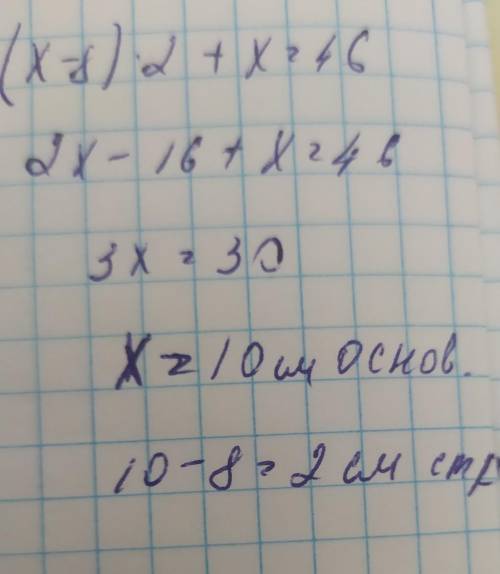 (x-8)·2+x=46
2x-16+x=46
3x=30
x=10см основ.
10-8=2 см стр